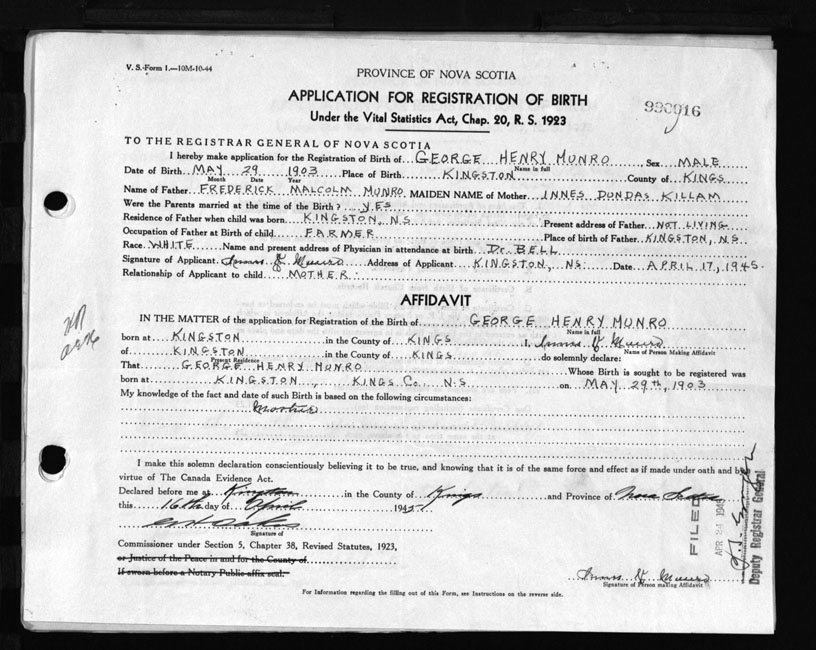 V. S. Form 1.—10M-10-44
PROVINCE OF NOVA SCOTIA
APPLICATION FOR REGISTRATION OF BIRTH
Under the Vital Statistics Act, Chap. 20, R. S. 1923
990916
TO THE REGISTRAR GENERAL OF NOVA SCOTIA
I hereby make application for the Registration of Birth of GEORGE HENRY MUNRO Sex MALE
Name in full
Date of Birth MAY 29 1903 Place of Birth KINGSTON County of KINGS
Month Date Year
Name of Father FREDERICK MALCOLM MUNRO MAIDEN NAME of Mother INNES DUNDAS KILLAM
Were the Parents married at the time of the Birth? YES
Residence of Father when child was born KINGSTON, N.S. Present address of Father NOT LIVING
Occupation of Father at Birth of child FARMER Place of birth of Father KINGSTON, N.S.
Race WHITE Name and present address of Physician in attendance at birth Dr. BELL
Signature of Applicant Munro Address of Applicant KINGSTON, NS. Date APRIL 17, 1945.
Relationship of Applicant to child MOTHER
AFFIDAVIT
IN THE MATTER of the application for Registration of Birth of GEORGE HENRY MUNRO
Name in full
born at KINGSTON in the County of KINGS I, Munro
Name of Person Making Affidavit
of KINGSTON in the County of KINGS do solemnly declare:
Present Residence
That GEORGE HENRY MUNRO Whose Birth is sought to be registered was
born at KINGSTON, KINGS Co., N.S. on MAY 29th, 1903
My knowledge of the fact and date of such Birth is based on the following circumstances:
Mother
I make this solemn declaration conscientiously believing it to be true, and knowing that it is of the same force and effect as if made under oath and by
virtue of The Canada Evidence Act.
Declared before me at Kingston in the County of Kings and Province of Nova Scotia
this 16th day of April 1945
Signature of
Commissioner under Section 5, Chapter 38, Revised Statutes, 1923,
or Justice of the Peace in and for the County of
If sworn before a Notary Public affix seal.
Munro
Signature of Person making Affidavit
For Information regarding the filling out of this Form, see Instructions on the reverse side.
FILED
APR 24 1945
Deputy Registrar General